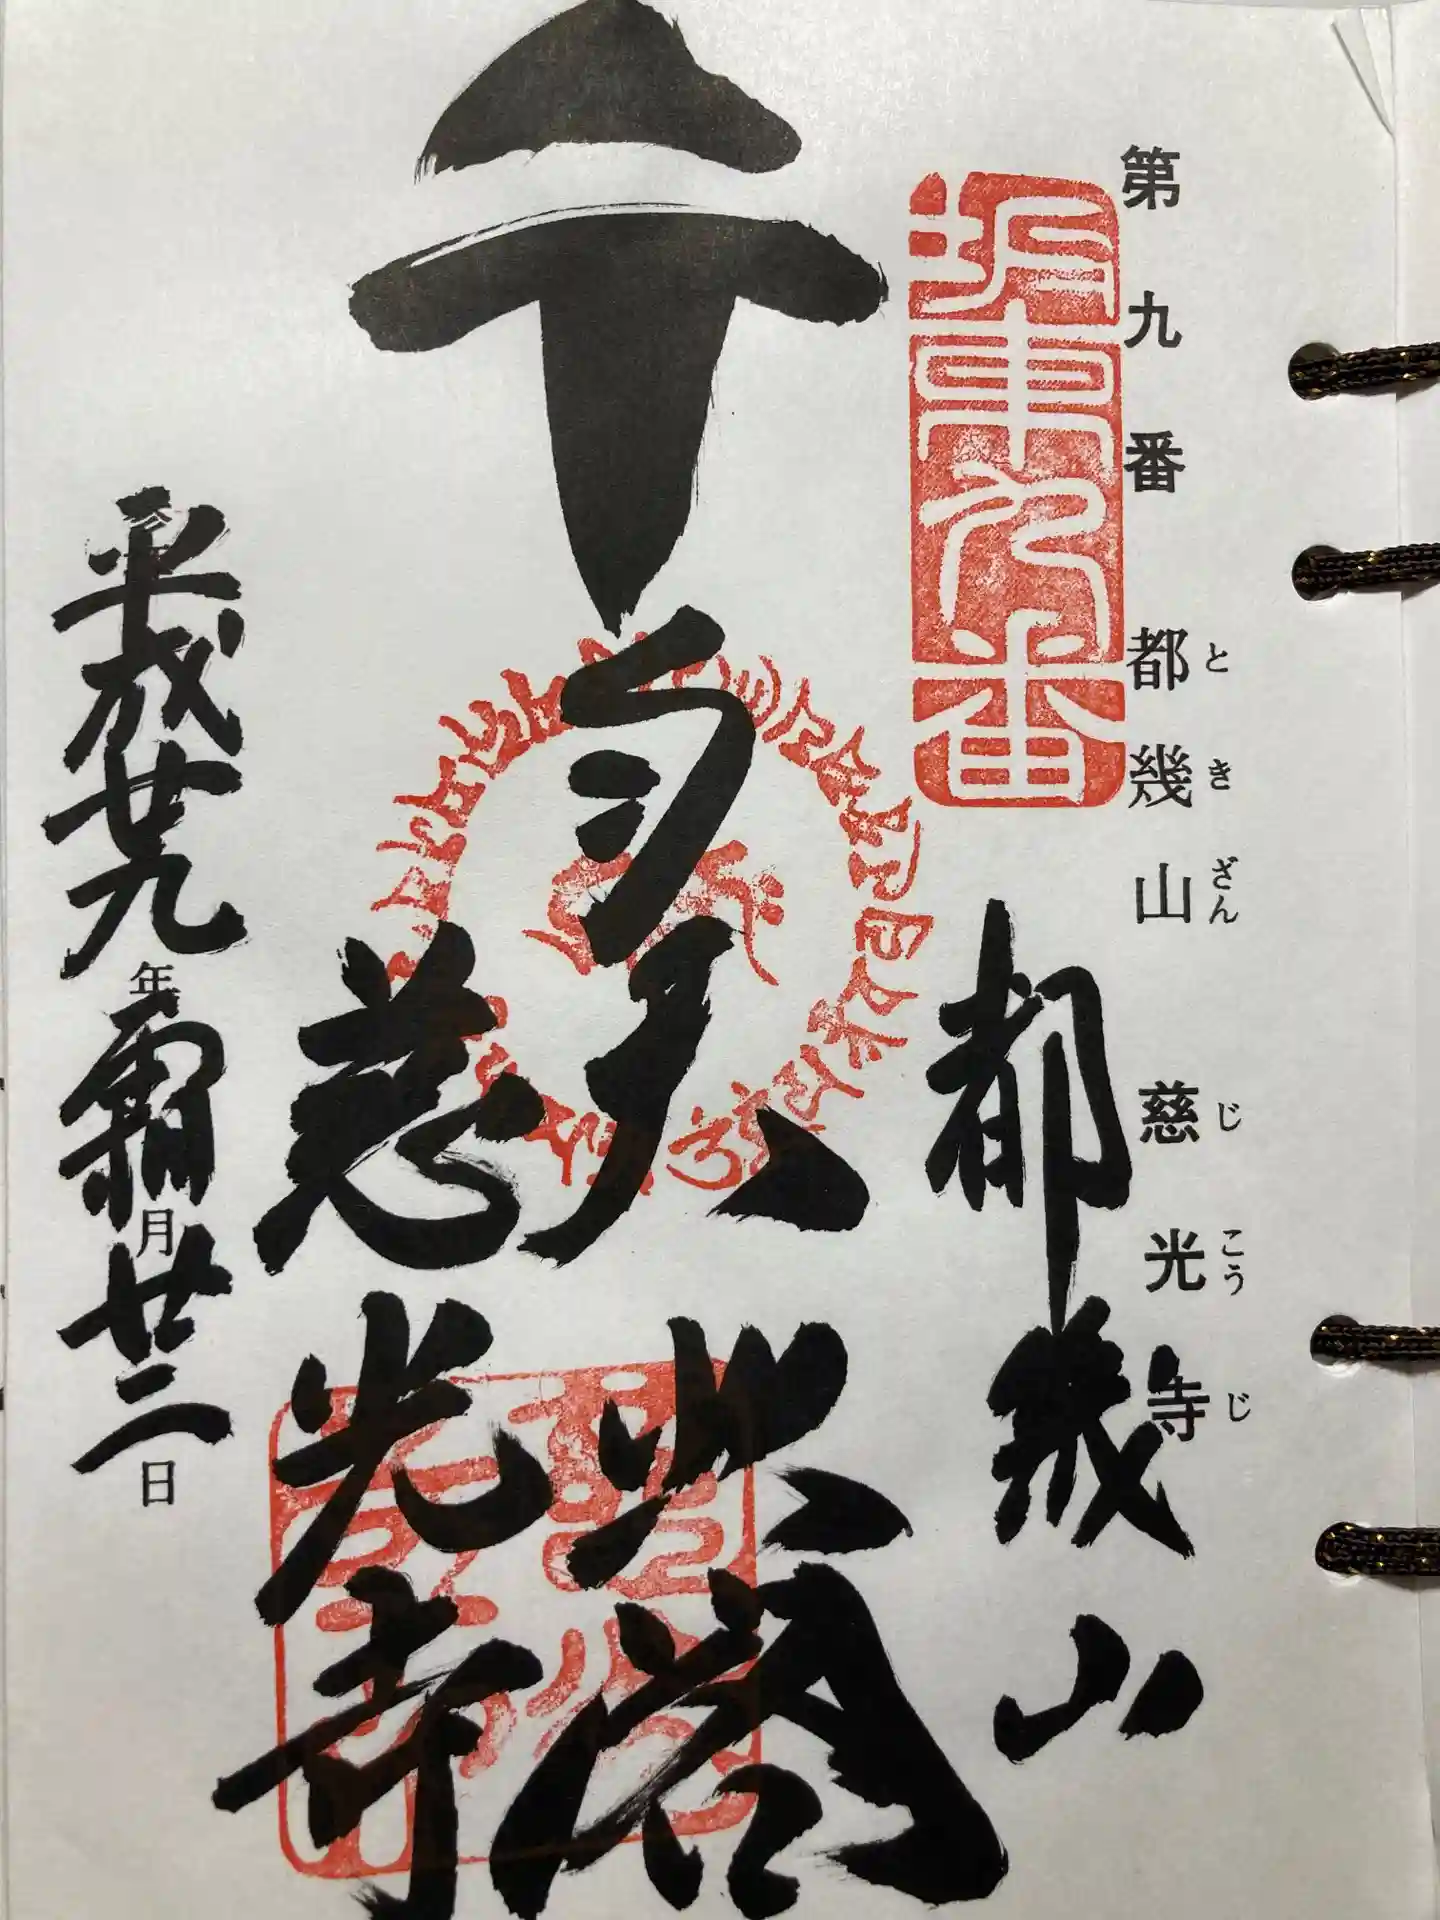 第九番 都幾山 慈光寺
ときざん じこうじ
坂東九番
都幾山
千手大悲閣
慈光寺
平成廿九年霜月廿二日